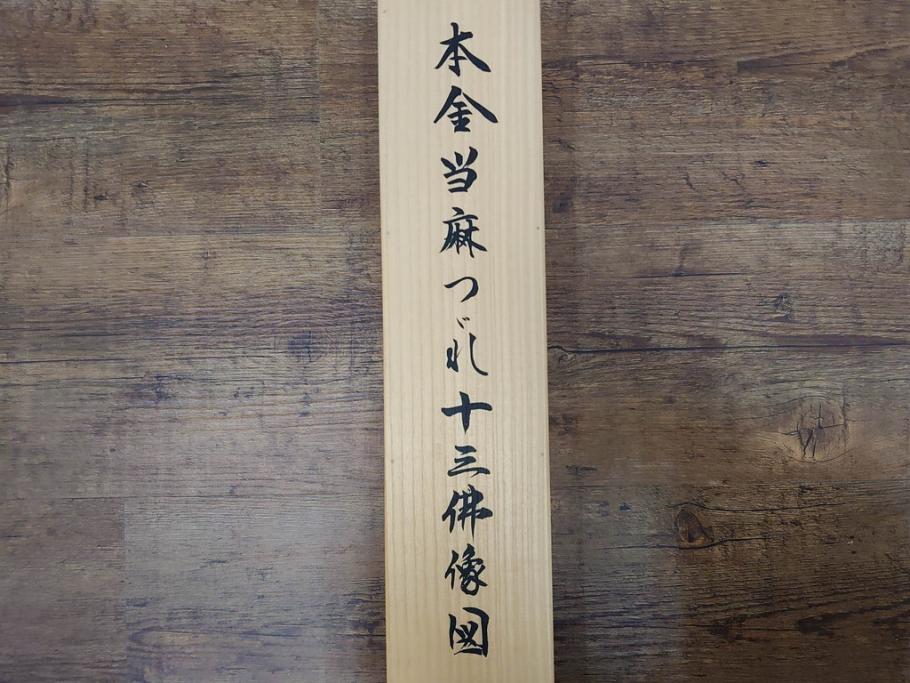 本金当麻つゞれ十三佛像図